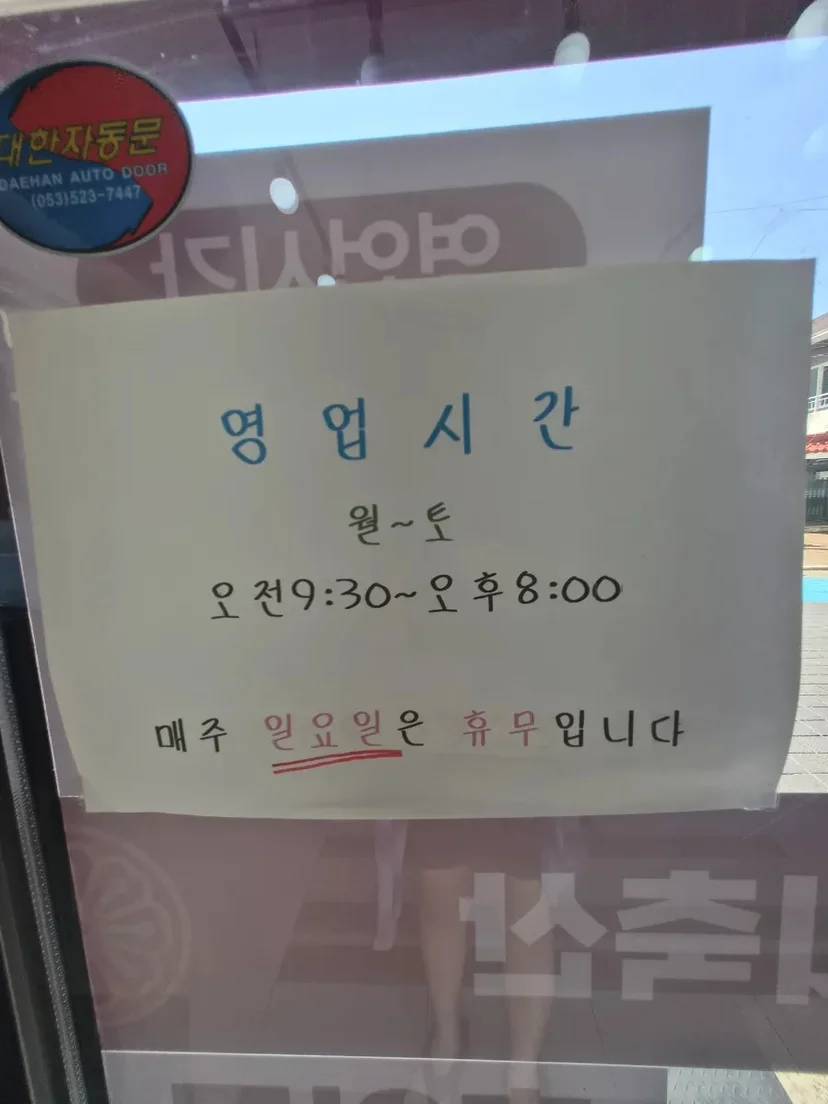 대한자동문
DAEHAN AUTO DOOR
(053)523-7447
영업시간
영 업 시 간
월~토
오전9:30~오후8:00
매주 일요일은 휴무입니다